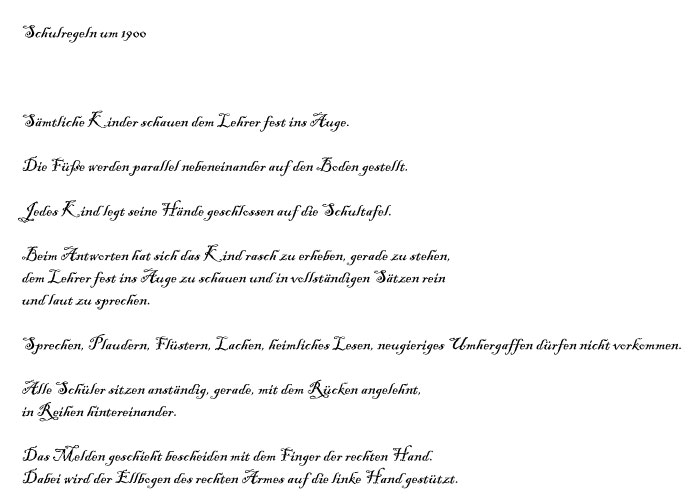 Schulregeln um 1900
Sämtliche Kinder schauen dem Lehrer fest ins Auge.
Die Füße werden parallel nebeneinander auf den Boden gestellt.
Jedes Kind legt seine Hände geschlossen auf die Schultafel.
Beim Antworten hat sich das Kind rasch zu erheben, gerade zu stehen,
dem Lehrer fest ins Auge zu schauen und in vollständigen Sätzen rein
und laut zu sprechen.
Sprechen, Plaudern, Flüstern, Lachen, heimliches Lesen, neugieriges Umhergaffen dürfen nicht vorkommen.
Alle Schüler sitzen anständig, gerade, mit dem Rücken angelehnt,
in Reihen hintereinander.
Das Melden geschieht bescheiden mit dem Finger der rechten Hand.
Dabei wird der Ellbogen des rechten Armes auf die linke Hand gestützt.